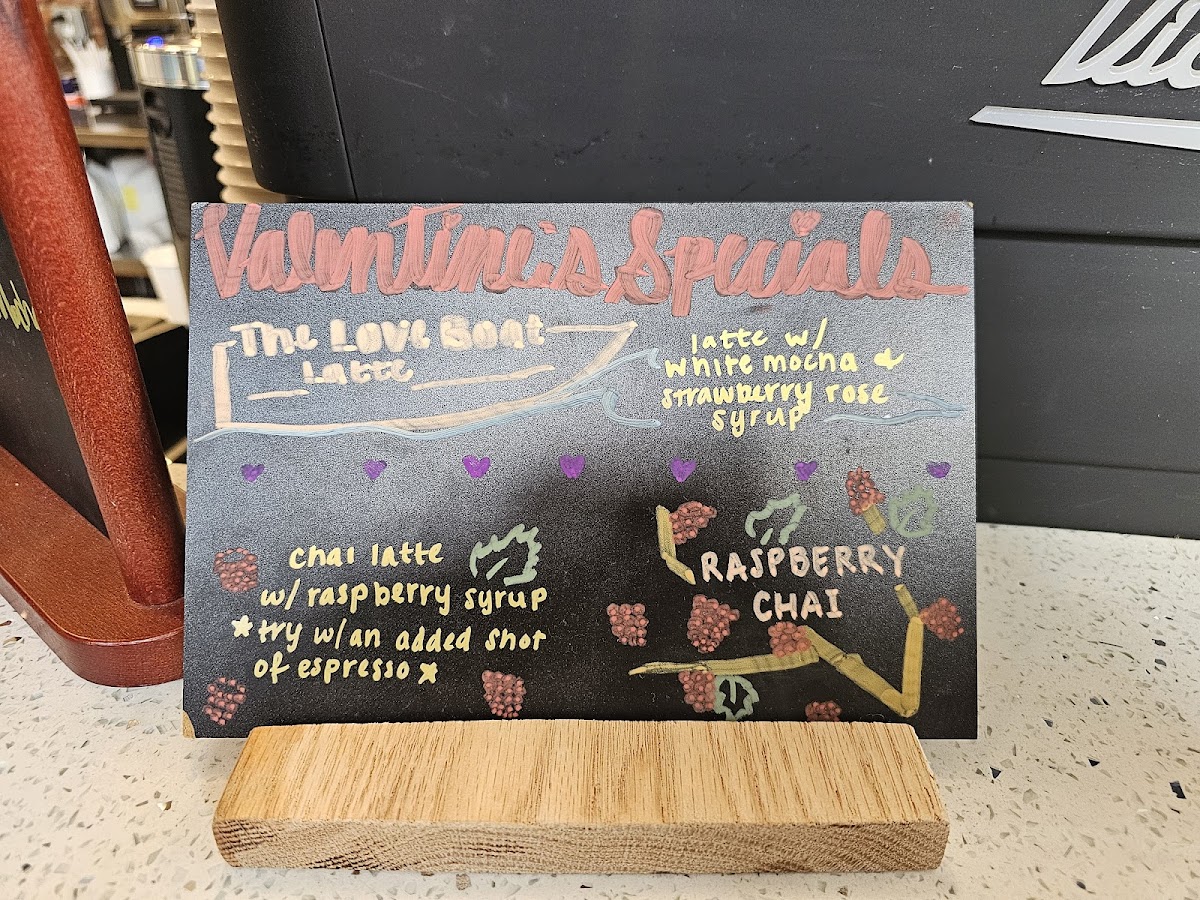 Valentine's Specials
The Love Boat
Latte
latte w/
white mocha &
strawberry rose
syrup
chai latte
w/ raspberry syrup
*try w/an added shot
of espresso*
RASPBERRY
CHAI